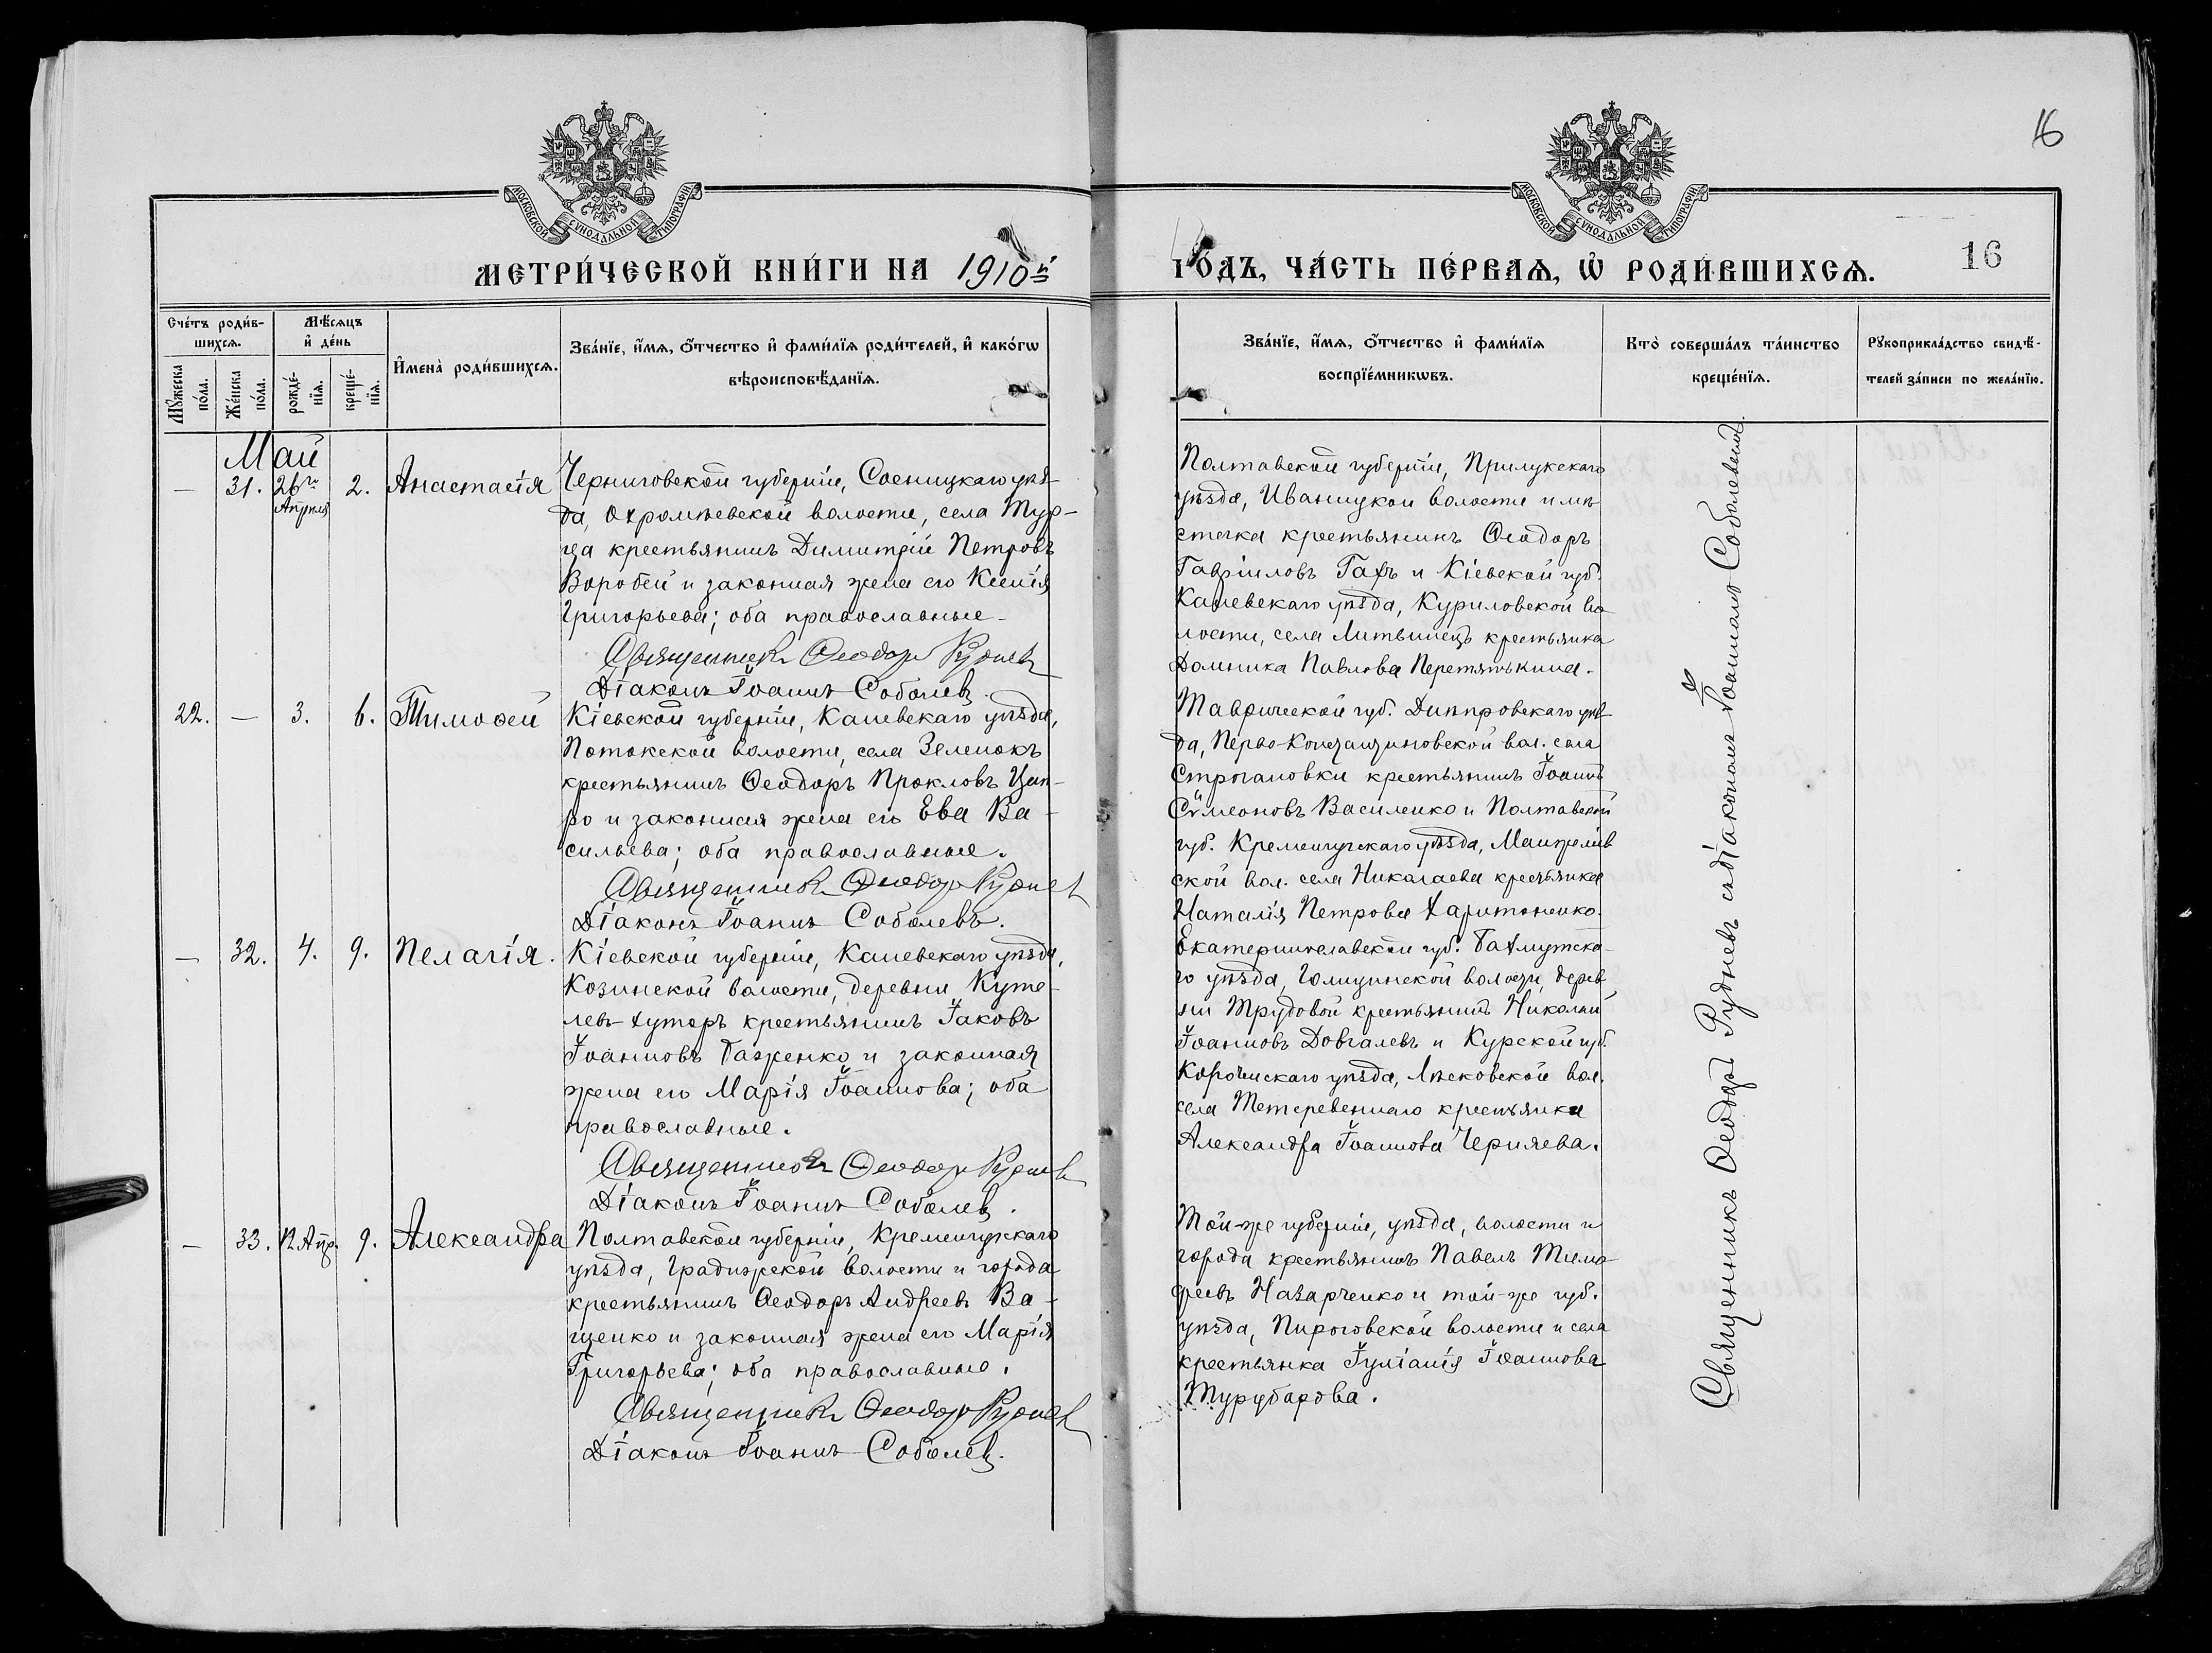 16
МОСКОВСКОЙ СѴНОДАЛЬНОЙ ТИПОГРАФІИ
МОСКОВСКОЙ СѴНОДАЛЬНОЙ ТИПОГРАФІИ
МЕТРИ́ЧЕСКОЙ КНИ́ГИ НА 1910й
ГО́ДЪ, ЧА́СТЬ ПЕ́РВАѦ, Ѡ҆ РОДИ́ВШИХСѦ.
16
Сче́тъ роди́в-
шихсѧ.
Мѣ́сѧцъ
и҆ де́нь
Мꙋ́жеска
по́ла.
Же́нска
по́ла.
рожде́-
нїѧ.
креще́-
нїѧ.
И҆мена̀ роди́вшихсѧ.
Зва́нїе, и҆́мѧ, ѻ҆́тчество и҆ фами́лїѧ роди́телей, и҆ како́гѡ
вѣроисповѣ́данїѧ.
Зва́нїе, и҆́мѧ, ѻ҆́тчество и҆ фами́лїѧ
воспрїе́мникѡвъ.
Кто̀ соверша́лъ та́инство
креще́нїѧ.
Рꙋкоприкла́дство свидѣ́-
телей за́писи по жела́нїю.
Май
— 31. 26го Апрѣля 2. Анастасія
Черниговской губерніи, Сосницкаго уѣз-
да, Охромѣевской волости, села Тур-
ца крестьянинъ Димитрій Петровъ
Воробей и законная жена его Ксенія
Григорьева; оба православные.
Священникъ Ѳеодоръ Рудневъ
Діаконъ Іоаннъ Соболевъ.
Полтавской губерніи, Прилукскаго
уѣзда, Иваницкой волости и мѣ-
стечка крестьянинъ Ѳеодоръ
Гавріиловъ Гахъ и Кіевской губ.
Каневскаго уѣзда, Куриловской во-
лости, села Литвинецъ крестьянка
Домника Павлова Перетятькина.
22. — 3. 6. Тимоѳей
Кіевской губерніи, Каневскаго уѣзда,
Потокской волости, села Зеленокъ
крестьянинъ Ѳеодоръ Прокловъ Цап-
ро и законная жена его Ева Ва-
сильева; оба православные.
Священникъ Ѳеодоръ Рудневъ
Діаконъ Іоаннъ Соболевъ.
Таврической губ. Днѣпровскаго уѣз-
да, Перво-Константиновской вол. села
Строгановки крестьянинъ Іоаннъ
Сѵмеоновъ Василенко и Полтавской
губ. Кременчугскаго уѣзда, Манжелѣев-
ской вол. села Николаева крестьянка
Наталія Петрова Харитоненко.
— 32. 4. 9. Пелагія.
Кіевской губерніи, Каневскаго уѣзда,
Козинской волости, деревни Куте-
левъ-хуторъ крестьянинъ Іаковъ
Іоанновъ Баженко и законная
жена его Марія Іоаннова; оба
православные.
Священникъ Ѳеодоръ Рудневъ
Діаконъ Іоаннъ Соболевъ.
Екатеринославской губ. Бахмутска-
го уѣзда, Голицинской волости, дерев-
ни Трудовой крестьянинъ Николай
Іоанновъ Довгалевъ и Курской губ.
Корочанскаго уѣзда, Лѣсковской вол.
села Тетеревеннаго крестьянка
Александра Іоаннова Черняева.
— 33. 12 Апр. 9. Александра
Полтавской губерніи, Кременчугскаго
уѣзда, Градижской волости и города
крестьянинъ Ѳеодоръ Андреевъ Ва-
щенко и законная жена его Марія
Григорьева; оба православные.
Священникъ Ѳеодоръ Рудневъ
Діаконъ Іоаннъ Соболевъ.
Той-же губерніи, уѣзда, волости и
города крестьянинъ Павелъ Тимо-
феевъ Назарченко и той-же губ.
уѣзда, Пироговской волости и села
крестьянка Іуліанія Іоаннова
Турубарова.
Священникъ Ѳеодоръ Рудневъ съ діакономъ Іоанномъ Соболевымъ